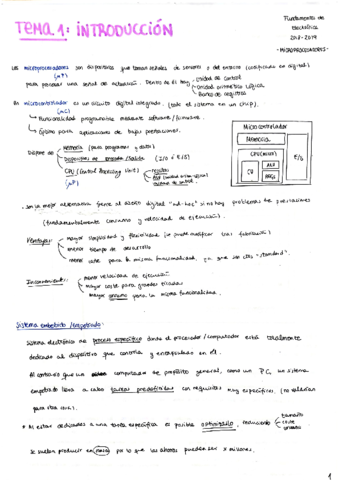 Fundamentos de
electrónica
2018-2019
-MICROPROCESADORES-
TEMA 1: INTRODUCCIÓN
Los microprocesadores son dispositivos que toman señales de sensores o del entorno (codificadas en digital)
(μP)
para procesar una señal de actuación. Dentro de él hay
Unidad de control
Unidad aritmético lógica
Banco de registros
Un microcontrolador es un circuito digital integrado. (todo el sistema en un chip).
(μC)
Funcionalidad programable mediante software/firmware.
Óptimo para aplicaciones de bajas prestaciones.
Dispone de
Memoria (para programas y datos)
Dispositivos de Entrada/Salida (I/O o E/S)
CPU (Central Processing Unit)
(μP)
Microcontrolador
Memoria
CPU (micro)
CU
ALU
REGS
E/S
Son la mejor alternativa frente al diseño digital "ad-hoc" si no hay problemas de prestaciones
(fundamentalmente consumo y velocidad de ejecución).
Ventajas:
mayor simplicidad y flexibilidad (se puede modificar tras fabricación)
menor tiempo de desarrollo
menor coste para la misma funcionalidad, ya que son chips "standard".
Inconvenientes:
menor velocidad de ejecución
mayor coste para grandes tiradas
mayor consumo para la misma funcionalidad.
Sistema embebido/empotrado:
Sistema electrónico de proceso específico donde el procesador/computador está totalmente
dedicado al dispositivo que controla y encapsulado en él.
Al contrario que un computador de propósito general, como un PC, un sistema
empotrado lleva a cabo tareas predefinidas con requisitos muy específicos. (no valdrían
para otra cosa).
* Al estar dedicados a una tarea específica es posible optimizarlo, reduciendo
tamaño
coste
Se suelen producir en masa por lo que los ahorros pueden ser x millones.
1